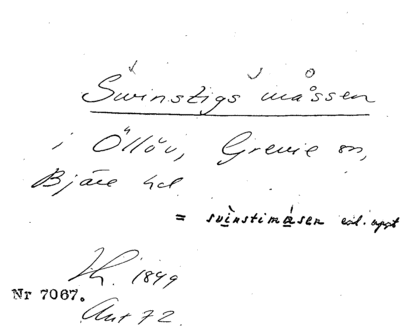 Svinstigs måssen
i Öllöv, Grevie sn,
Bjäre hd
= svinstimåsen enl. uppt
Lh. 1849
Nr 7067.
Ant 72.